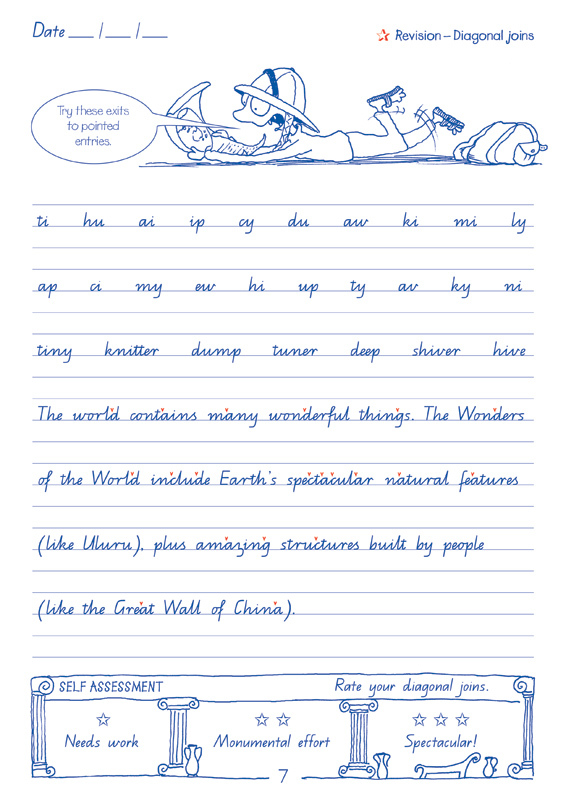 Date ___ /___ /___
☆ Revision – Diagonal joins
Try these exits
to pointed
entries.
ti hu ai ip cy du aw ki mi ly
ap ci my ew hi up ty av ky ni
tiny knitter dump tuner deep shiver hive
The world contains many wonderful things. The Wonders
of the World include Earth's spectacular natural features
(like Uluru), plus amazing structures built by people
(like the Great Wall of China).
SELF ASSESSMENT
Rate your diagonal joins.
☆ ☆ ☆ ☆ ☆ ☆
Needs work Monumental effort Spectacular!
7